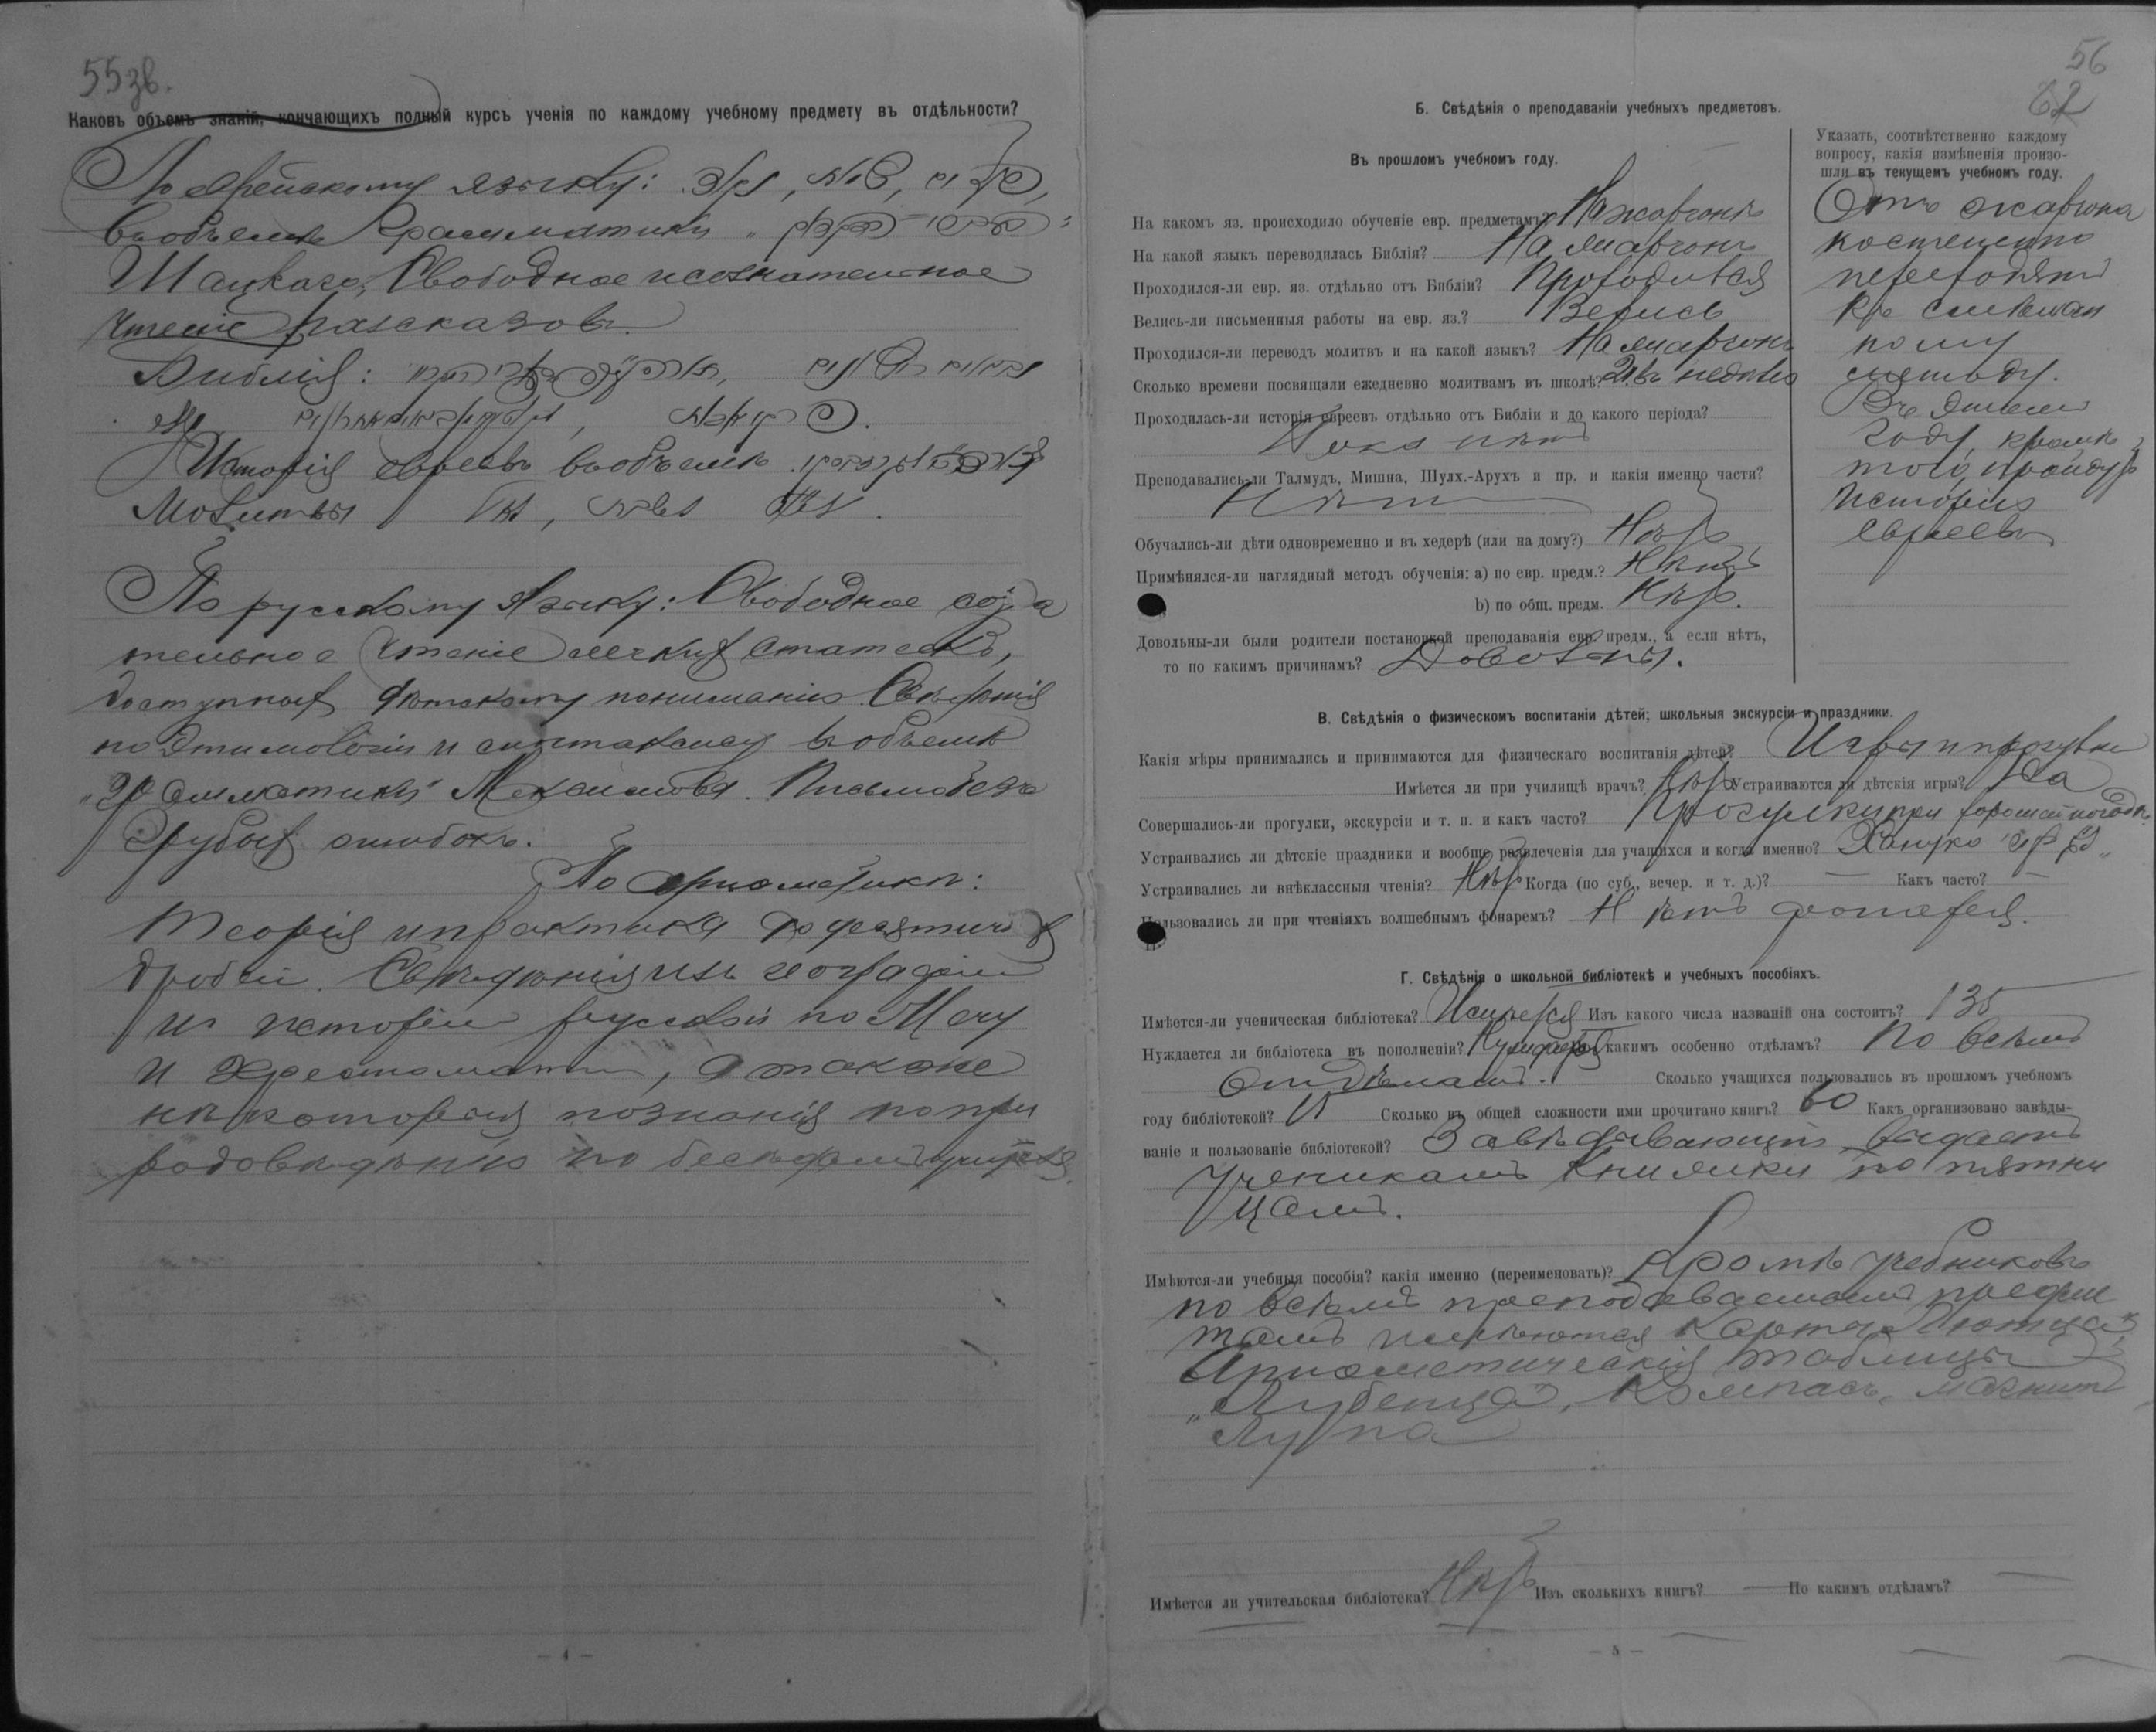 55зв.
Каковъ объемъ знаній, кончающихъ полный курсъ ученія по каждому учебному предмету въ отдѣльности?
По еврейскому языку:
въ объемѣ Грамматики
Шацкаго, Свободное и сознательное
чтеніе разсказовъ.
Библія:
Исторія евреевъ въ объемѣ
Молитвы
По русскому языку: Свободное созна
тельное чтеніе легкихъ статеекъ,
доступныхъ дѣтскому пониманію. Свѣдѣнія
по Этимологіи и синтаксису въ объемѣ
"Грамматики" Письмо безъ
грубыхъ ошибокъ.
По ариѳметикѣ:
Теорія и практика до десятичныхъ
дробей. Свѣдѣнія изъ географіи
и исторіи русской по Мечу
и Хрестоматіи, а также
нѣкоторыя познанія по при
родовѣдѣнію по бесѣдамъ учителя.
— 4 —
56
62
Б. Свѣдѣнія о преподаваніи учебныхъ предметовъ.
Въ прошломъ учебномъ году.
Указать, соотвѣтственно каждому
вопросу, какія измѣненія произо-
шли въ текущемъ учебномъ году.
На какомъ яз. происходило обученіе евр. предметамъ? На жаргонѣ
На какой языкъ переводилась Библія? На жаргонъ
Проходился-ли евр. яз. отдѣльно отъ Библіи? Проходился
Велись-ли письменныя работы на евр. яз.? Велись
Проходился-ли переводъ молитвъ и на какой языкъ? На жаргонъ
Сколько времени посвящали ежедневно молитвамъ въ школѣ? въ недѣлю
Проходилась-ли исторія евреевъ отдѣльно отъ Библіи и до какого періода?
Пока нѣтъ
Преподавались-ли Талмудъ, Мишна, Шулх.-Арухъ и пр. и какія именно части?
Нѣтъ
Обучались-ли дѣти одновременно и въ хедерѣ (или на дому?) Нѣтъ
Примѣнялся-ли наглядный методъ обученія: а) по евр. предм.? Нѣтъ
b) по общ. предм. Нѣтъ.
Довольны-ли были родители постановкой преподаванія евр. предм., а если нѣтъ,
то по какимъ причинамъ? Довольны.
Отъ жаргона
переходятъ
къ
методу.
Въ этомъ
году, кромѣ
того, пройдутъ
исторію
евреевъ
В. Свѣдѣнія о физическомъ воспитаніи дѣтей; школьныя экскурсіи и праздники.
Какія мѣры принимались и принимаются для физическаго воспитанія дѣтей? Игры и прогулки
Имѣется ли при училищѣ врачъ? Нѣтъ Устраиваются ли дѣтскія игры? Да
Совершались-ли прогулки, экскурсіи и т. п. и какъ часто? Прогулки при хорошей погодѣ.
Устраивались ли дѣтскіе праздники и вообще развлеченія для учащихся и когда именно? Ханука
Устраивались ли внѣклассныя чтенія? Нѣтъ Когда (по суб., вечер. и т. д.)? — Какъ часто? —
Пользовались ли при чтеніяхъ волшебнымъ фонаремъ? Нѣтъ фонаря.
Г. Свѣдѣнія о школьной библіотекѣ и учебныхъ пособіяхъ.
Имѣется-ли ученическая библіотека? Имѣется Изъ какого числа названій она состоитъ? 135
Нуждается ли библіотека въ пополненіи? Нуждается какимъ особенно отдѣламъ? По всѣмъ
отдѣламъ. Сколько учащихся пользовались въ прошломъ учебномъ
году библіотекой? Сколько въ общей сложности ими прочитано книгъ? 60 Какъ организовано завѣды-
ваніе и пользованіе библіотекой? Завѣдывающій выдаетъ
ученикамъ книжки по пятни
цамъ.
Имѣются-ли учебныя пособія? какія именно (переименовать)? Кромѣ учебниковъ
по всѣмъ преподаваемымъ предме
тамъ имѣются Карты
Ариѳметическія таблицы
"Лубенца", Компасъ, магнитъ
Лупа
Имѣется ли учительская библіотека? Нѣтъ Изъ сколькихъ книгъ? — По какимъ отдѣламъ? —
— 5 —